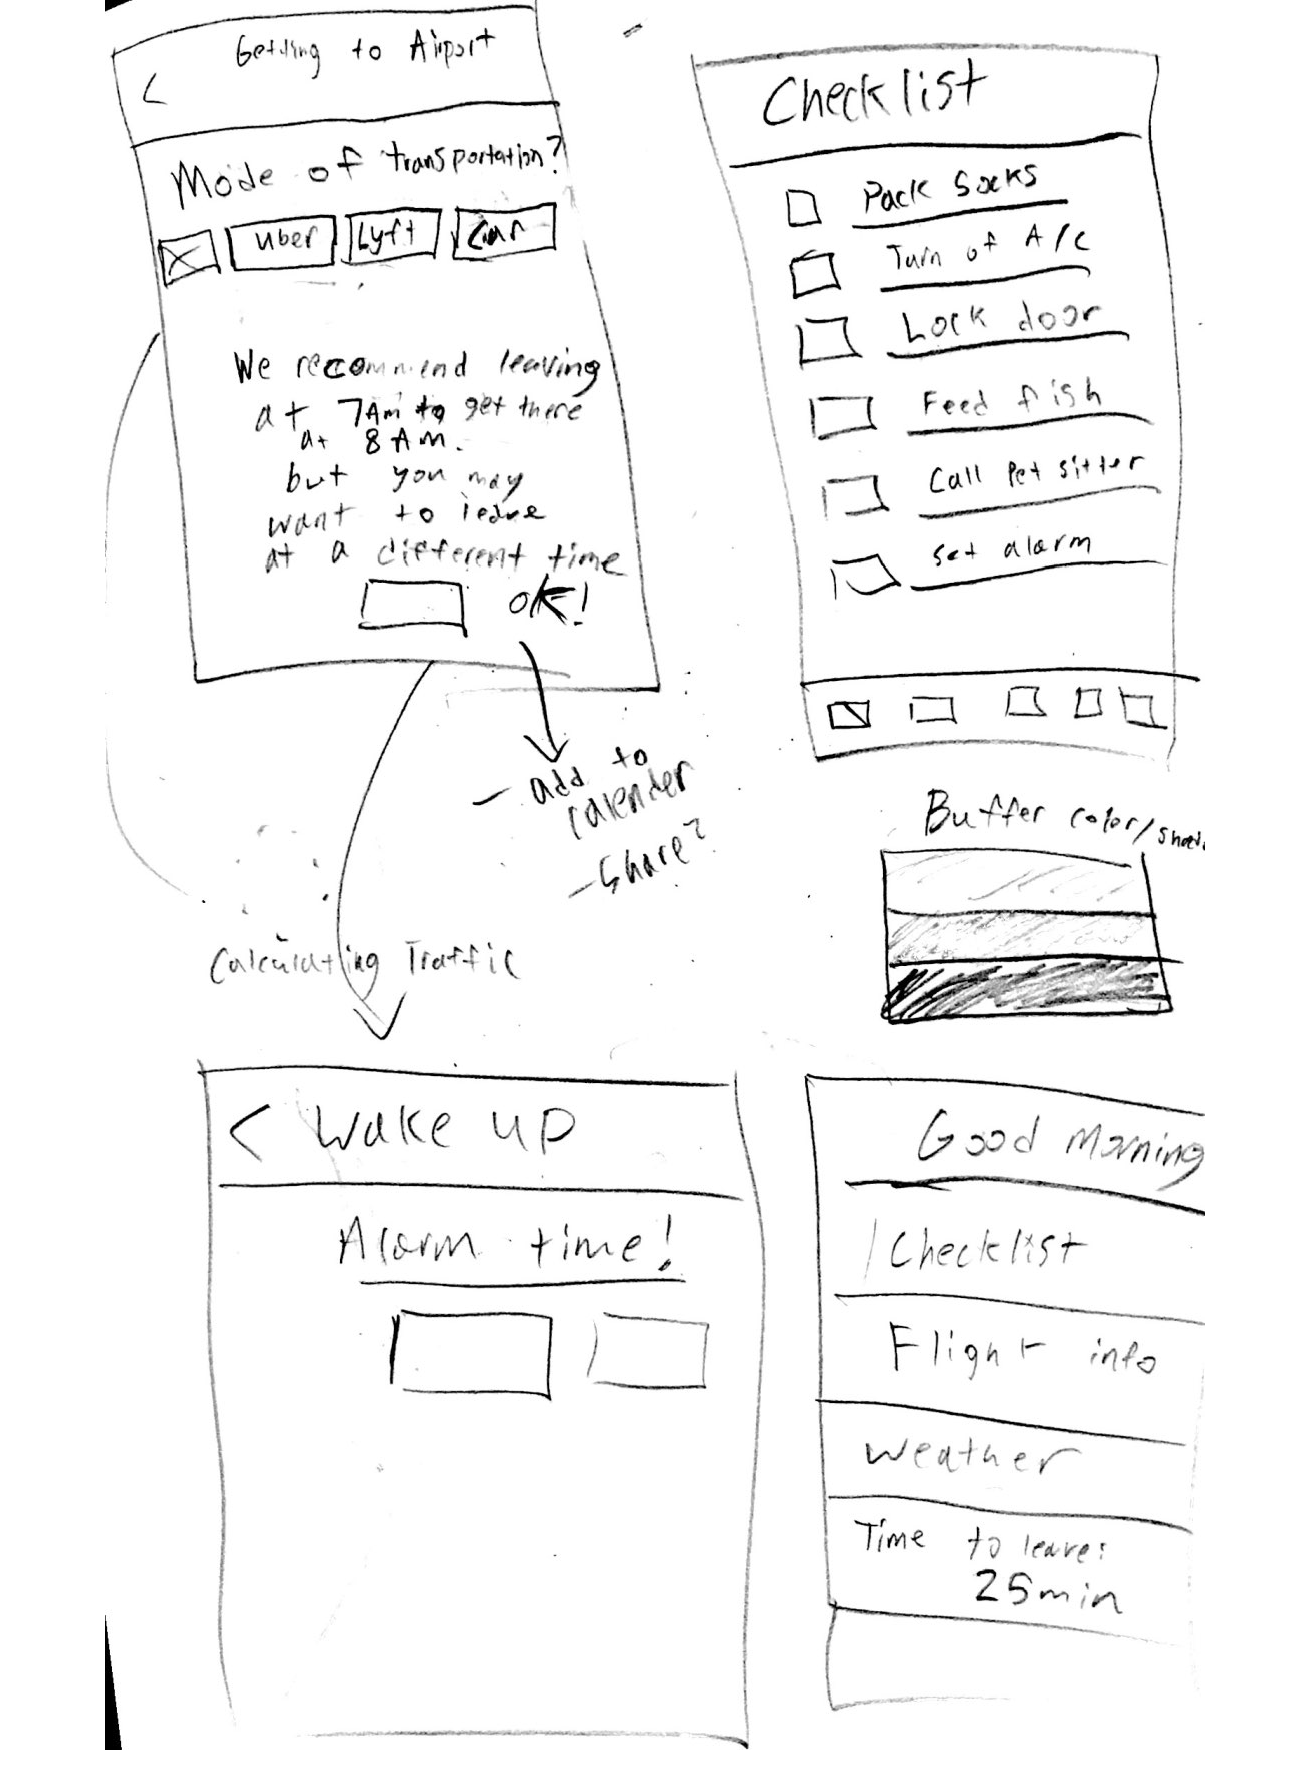 Getting to Airport
<
Mode of transportation?
Uber Lyft Car
We recommend leaving
at 7AM to get there
at 8 AM.
but you may
want to leave
at a different time
OK!
- add to
calender
- Share?
Calculating Traffic
Checklist
Pack Socks
Turn of A/C
Lock door
Feed fish
Call Pet sitter
Set alarm
Buffer color/
< Wake up
Alarm time!
Good Morning
Checklist
Flight info
Weather
Time to leave:
25min